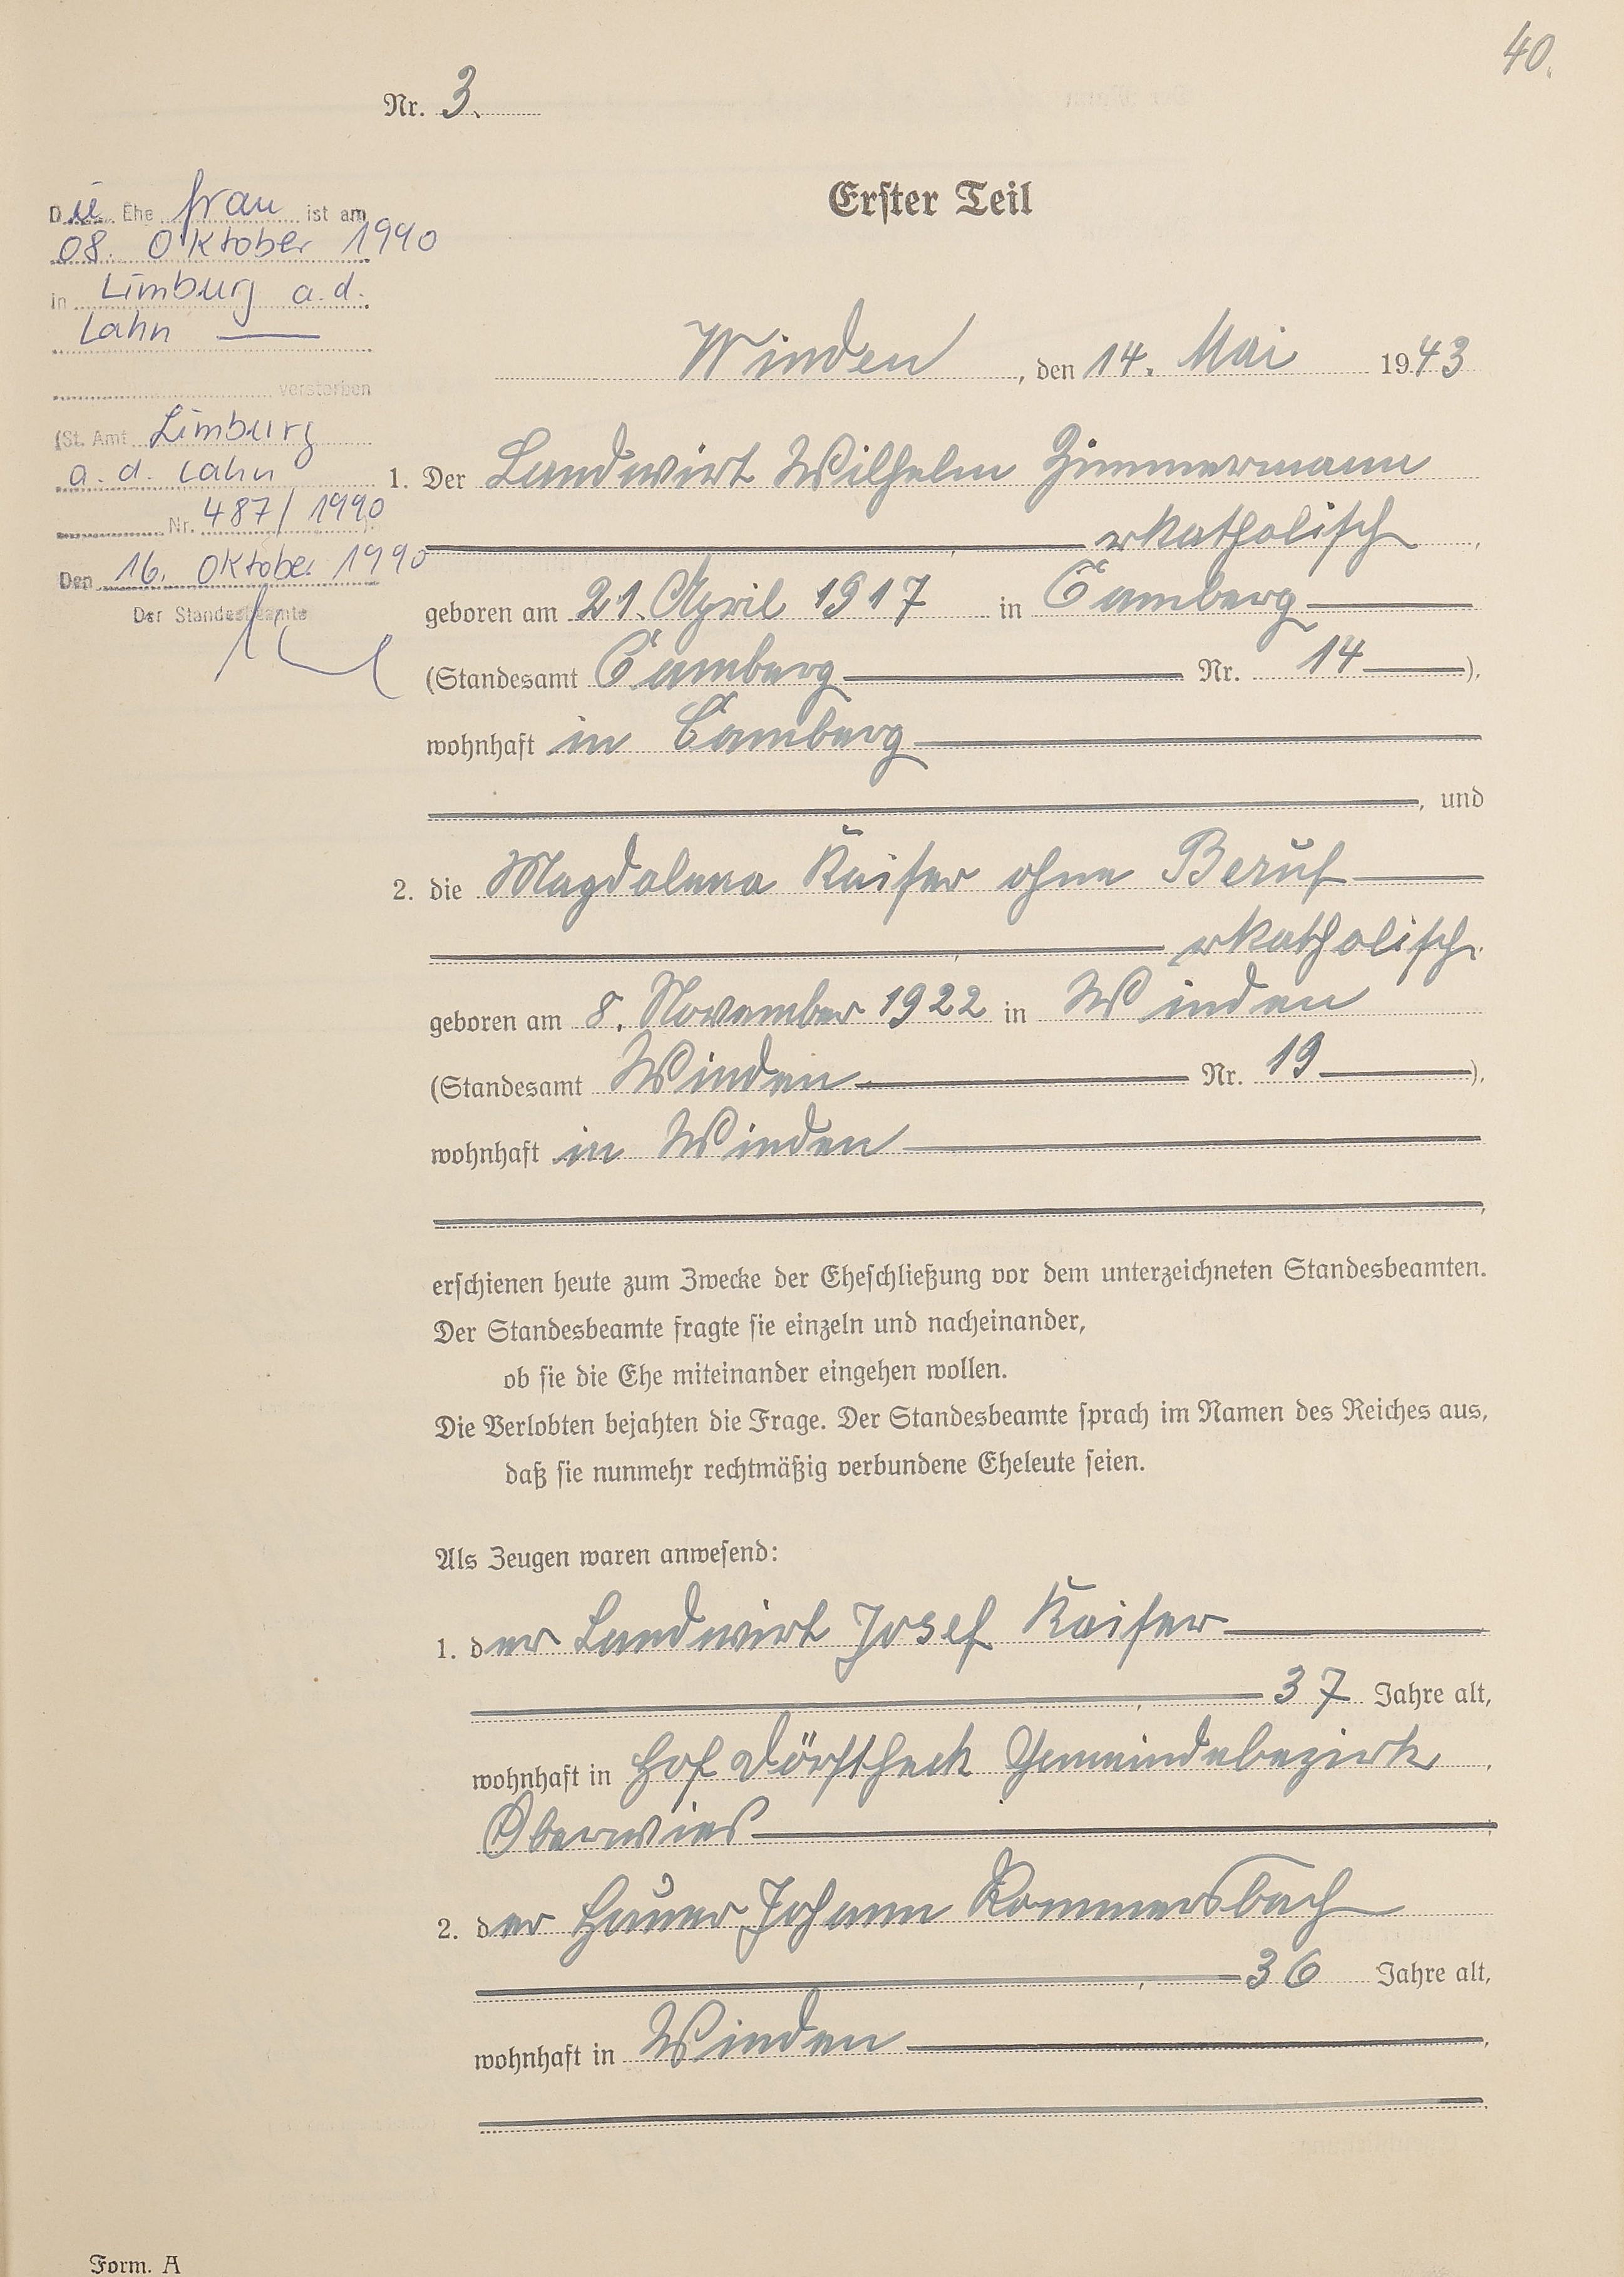 40.
Nr. 3.
Die Ehefrau ist am
08. Oktober 1990
in Limburg a.d.
Lahn
verstorben
(St. Amt Limburg
a. d. Lahn
Nr. 487/1990).
Den 16. Oktober 1990
Der Standesbeamte
Erster Teil
Winden, den 14. Mai 1943
1. Der Landwirt Wilhelm Zimmermann
rkatholisch,
geboren am 21. April 1917 in Camberg
(Standesamt Camberg Nr. 14),
wohnhaft in Camberg
, und
2. die Magdalena Kaiser ohne Beruf
rkatholisch,
geboren am 8. November 1922 in Winden
(Standesamt Winden Nr. 19),
wohnhaft in Winden
,
erschienen heute zum Zwecke der Eheschließung vor dem unterzeichneten Standesbeamten.
Der Standesbeamte fragte sie einzeln und nacheinander,
ob sie die Ehe miteinander eingehen wollen.
Die Verlobten bejahten die Frage. Der Standesbeamte sprach im Namen des Reiches aus,
daß sie nunmehr rechtmäßig verbundene Eheleute seien.
Als Zeugen waren anwesend:
1. der Landwirt Josef Kaiser
37 Jahre alt,
wohnhaft in Hof Dörstheck Gemeindebezirk,
Oberwies
2. der Hauer Johann Rommersbach
36 Jahre alt,
wohnhaft in Winden,
Form. A